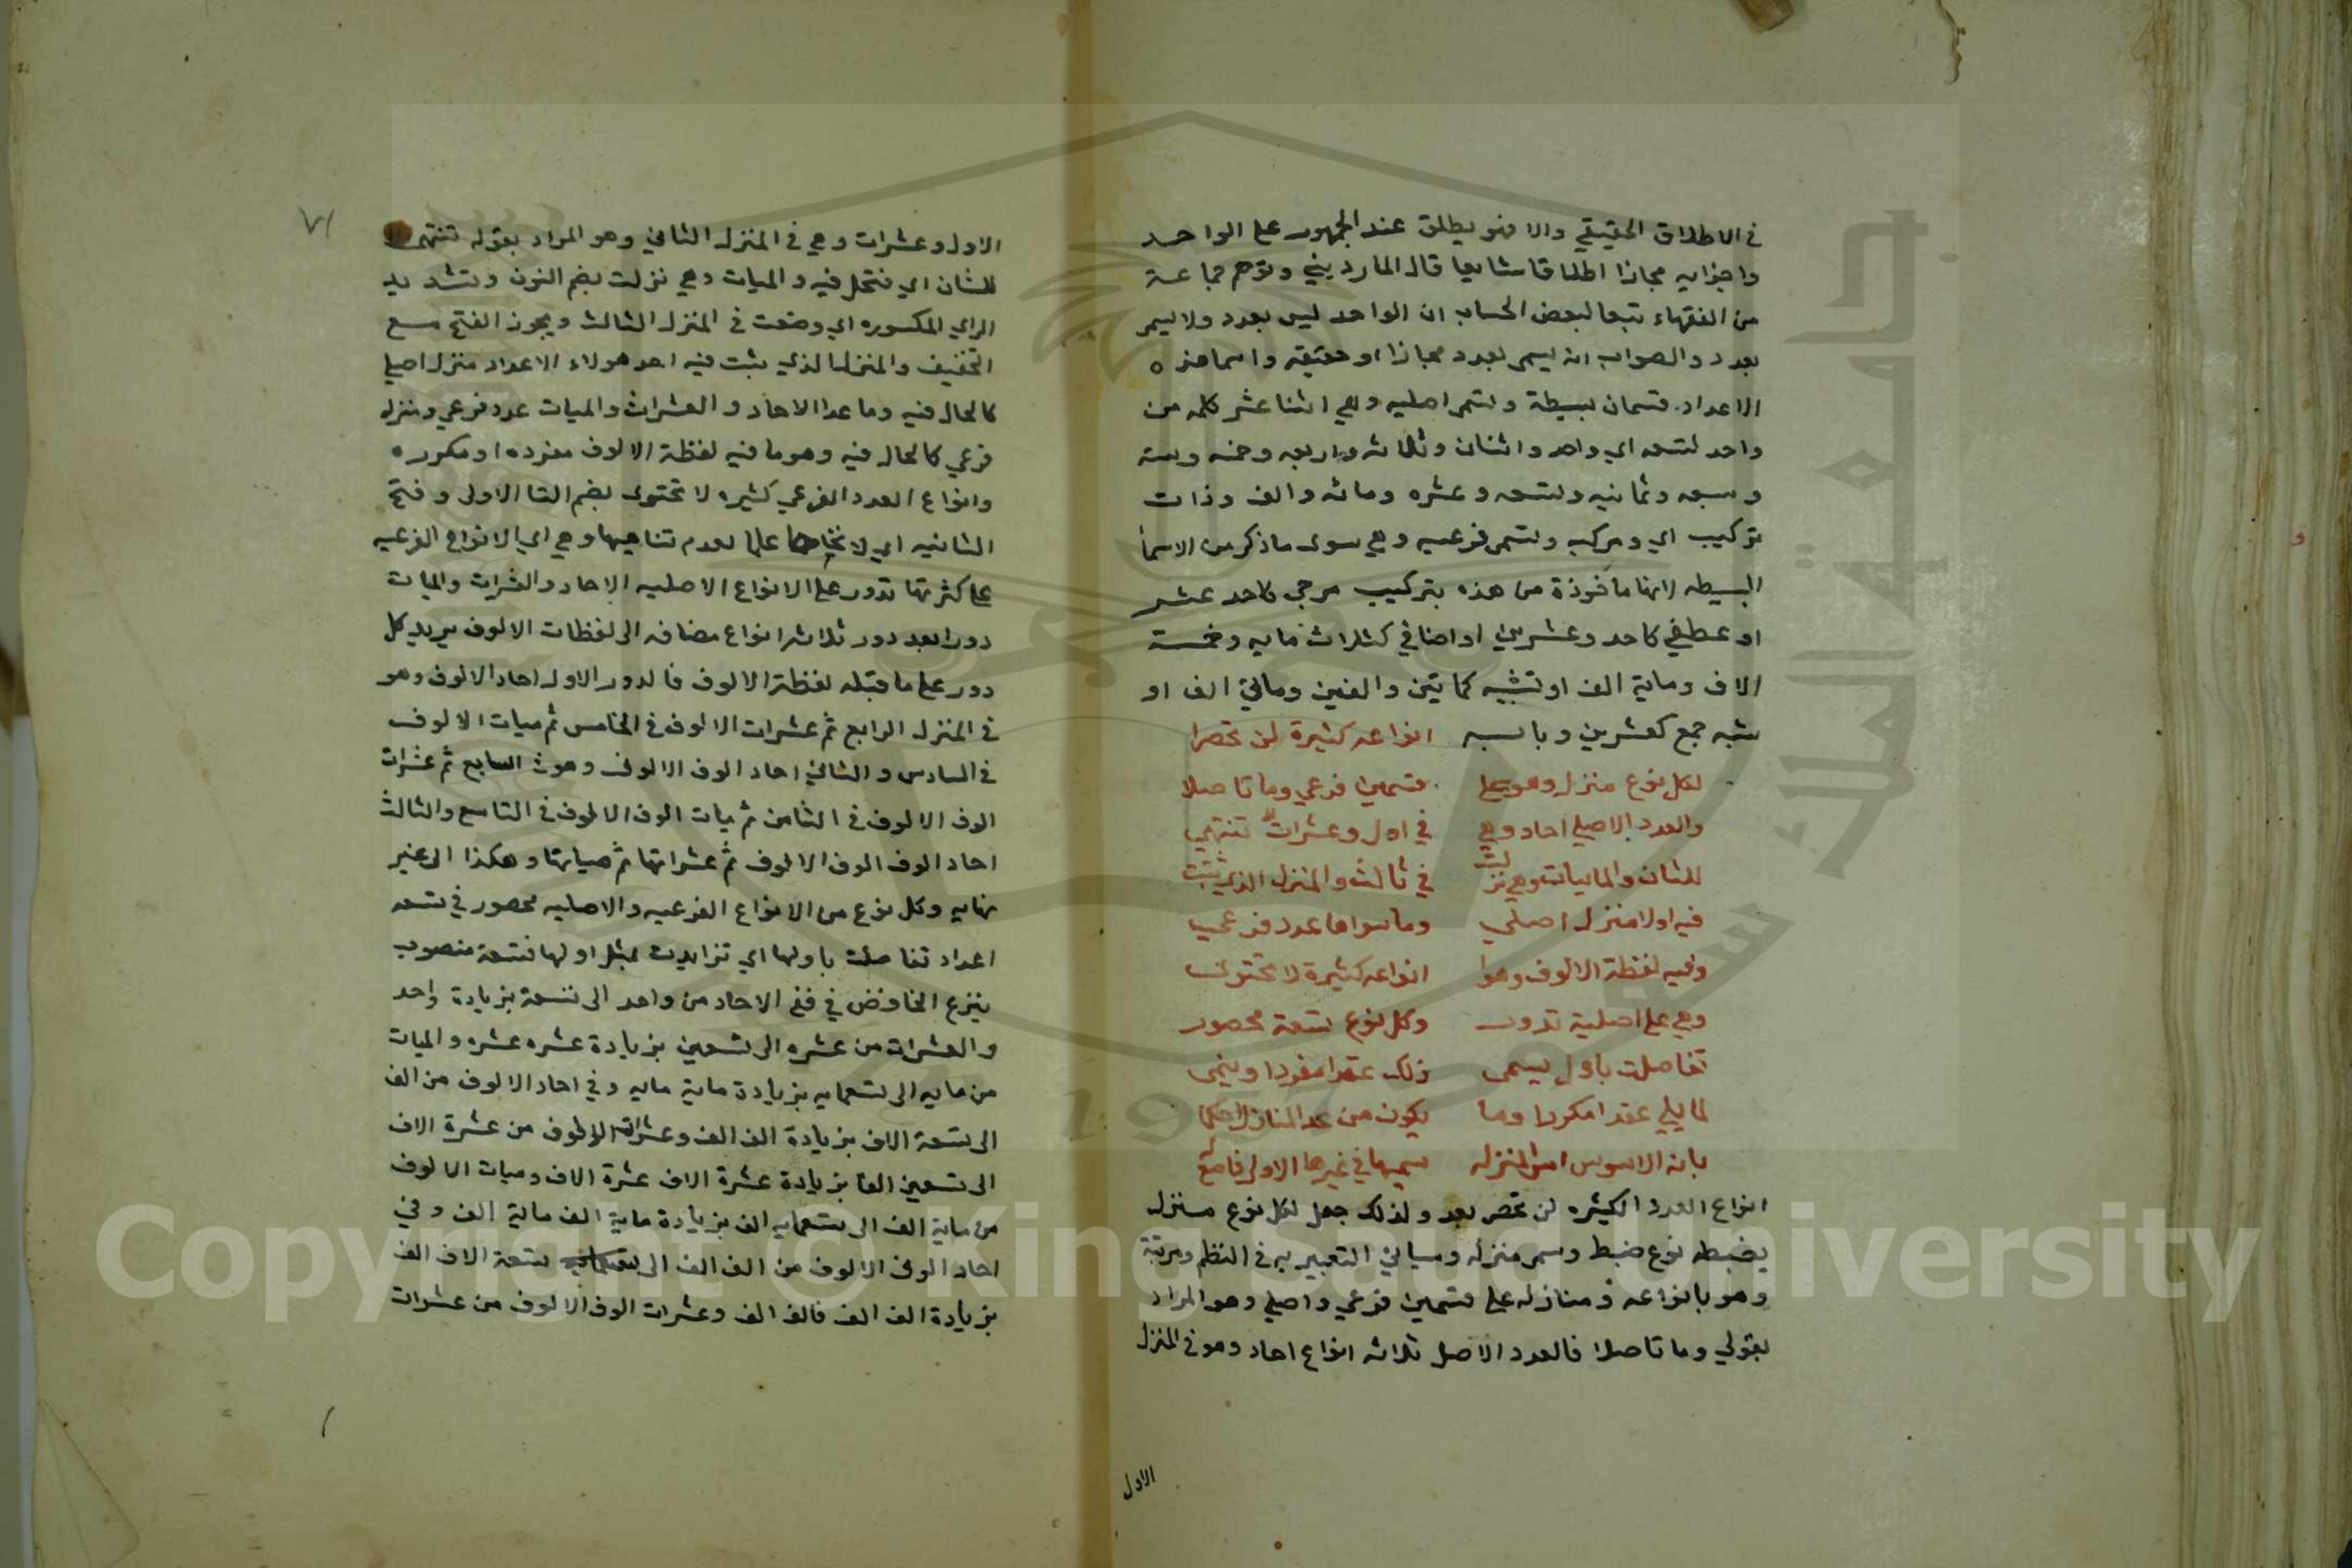 في الاطلاق الحقيقي والا فهو يطلق عند الجمهور على الواحد
واجزايه مجازا اطلاقا شايعا قال المارديني وتوهم جماعة
من الفقهاء تبعا لبعض الحساب ان الواحد ليس بعدد ولا يسمى
بعدد والصواب انه يسمى بعدد مجازا او حقيقة واسما هذه
الاعداد قسمان بسيطة وتسمى اصليه وهي اثنا عشر كلمه من
واحد لتسعه اي واحد واثنان وثلاثه واربعه وخمسه وسته
وسبعه وثمانيه وتسعه وعشره ومائه والف وذات
تركيب اي ومركبه وتسمى فرعيه وهي سوى ما ذكر من الاسماء
البسيطه لانها ماخوذة من هذه بتركيب مزجي كاحد عشر
او عطفي كاحد وعشرين او اضافي كثلاث مايه وخمسة
الاف ومائة الف او تثنيه كمائتين والفين ومائتي الف او
شبه جمع كعشرين وبابه انواعه كثيرة لن تحصرا
لكل نوع منزل وهو على قسمين فرعي وما تاصلا
والعدد الاصلي احاد وهي في اول وعشرات تنتهي
للثان والمايات وهي نزلت في ثالث والمنزل الذي يثبت
فيه اولا منزل اصلي وما سواها عدد فرعي
وفيه لفظة الالوف وهوا انواعه كثيرة لا تحتوى
وهي على اصلية تدور وكل نوع تسعة محصور
تفاضلت باول يسمى ذلك عقدا مفردا وينمى
لما يلي عقدا مكررا وما يكون من عد المنازل احكما
بانه الاسوس اس المنزله سميها في غيرها الاولى فامع له
انواع العدد الكثيره لن تحصر بعد ولذلك جعل لكل نوع منزل
يضبطه نوع ضبط وسمى منزله وسياتي التعبير به في النظم ومرتبة
وهو بانواعه ومنازله على قسمين فرعي واصلي وهو المراد
بقولي وما تاصلا فالعدد الاصل ثلاثه انواع احاد وهو في المنزل
الاول
٧١
الاول وعشرات وهي في المنزل الثاني وهو المراد بقوله تنتهي
للثان اي فتحل فيه والميات وهي نزلت بضم النون وتشديد
الزاي المكسوره اي وضعت في المنزل الثالث ويجوز الفتح مع
التخفيف والمنزل الذي يثبت فيه احد هولاء الاعداد منزل اصلي
كالحال فيه وما عدا الاحاد والعشرات والميات عدد فرعي ومنزله
فرعي كالحال فيه وهو ما فيه لفظة الالوف مفرده او مكرره
وانواع العدد الفرعي كثيره لا تحتوى بضم التا الاولى وفتح
الثانيه اي لا علما لعدم تناهيها وهي اي الانواع الفرعيه
على كثرتها تدور على الانواع الاصليه الاحاد والعشرات والميات
دورا بعد دور ثلاثه انواع مضافه الى لفظات الالوف يزيد كل
دور على ما قبله لفظة الالوف فالدور الاول احاد الالوف وهو
في المنزل الرابع ثم عشرات الالوف في الخامس ثم ميات الالوف
في السادس والثاني احاد الوف الالوف وهو في السابع ثم عشرات
الوف الالوف في الثامن ثم ميات الوف الالوف في التاسع والثالث
احاد الوف الوف الالوف ثم عشراتها ثم مياتها وهكذا الى غير
نهايه وكل نوع من الانواع الفرعيه والاصليه محصور في تسعه
اعداد تفاضلت باولها اي تزايدت بمثل اولها فتسعة منصوب
بنزع الخافض ففي الاحاد من واحد الى تسعة بزيادة واحد
والعشرات من عشره الى تسعين بزيادة عشره عشره والميات
من مايه الى تسعمايه بزيادة مايه مايه وفي احاد الالوف من الف
الى تسعة الاف بزيادة الف الف وعشرات الالوف من عشرة الاف
الى تسعين الفا بزيادة عشرة الاف عشرة الاف وميات الالوف
من ماية الف الى تسعمايه الف بزيادة ماية الف ماية الف وفي
احاد الوف الالوف من الف الف الى تسعة الاف الف
بزيادة الف الف فالف الف وعشرات الوف الالوف من عشرات
Copyright © King Saud University
جامعة الملك سعود